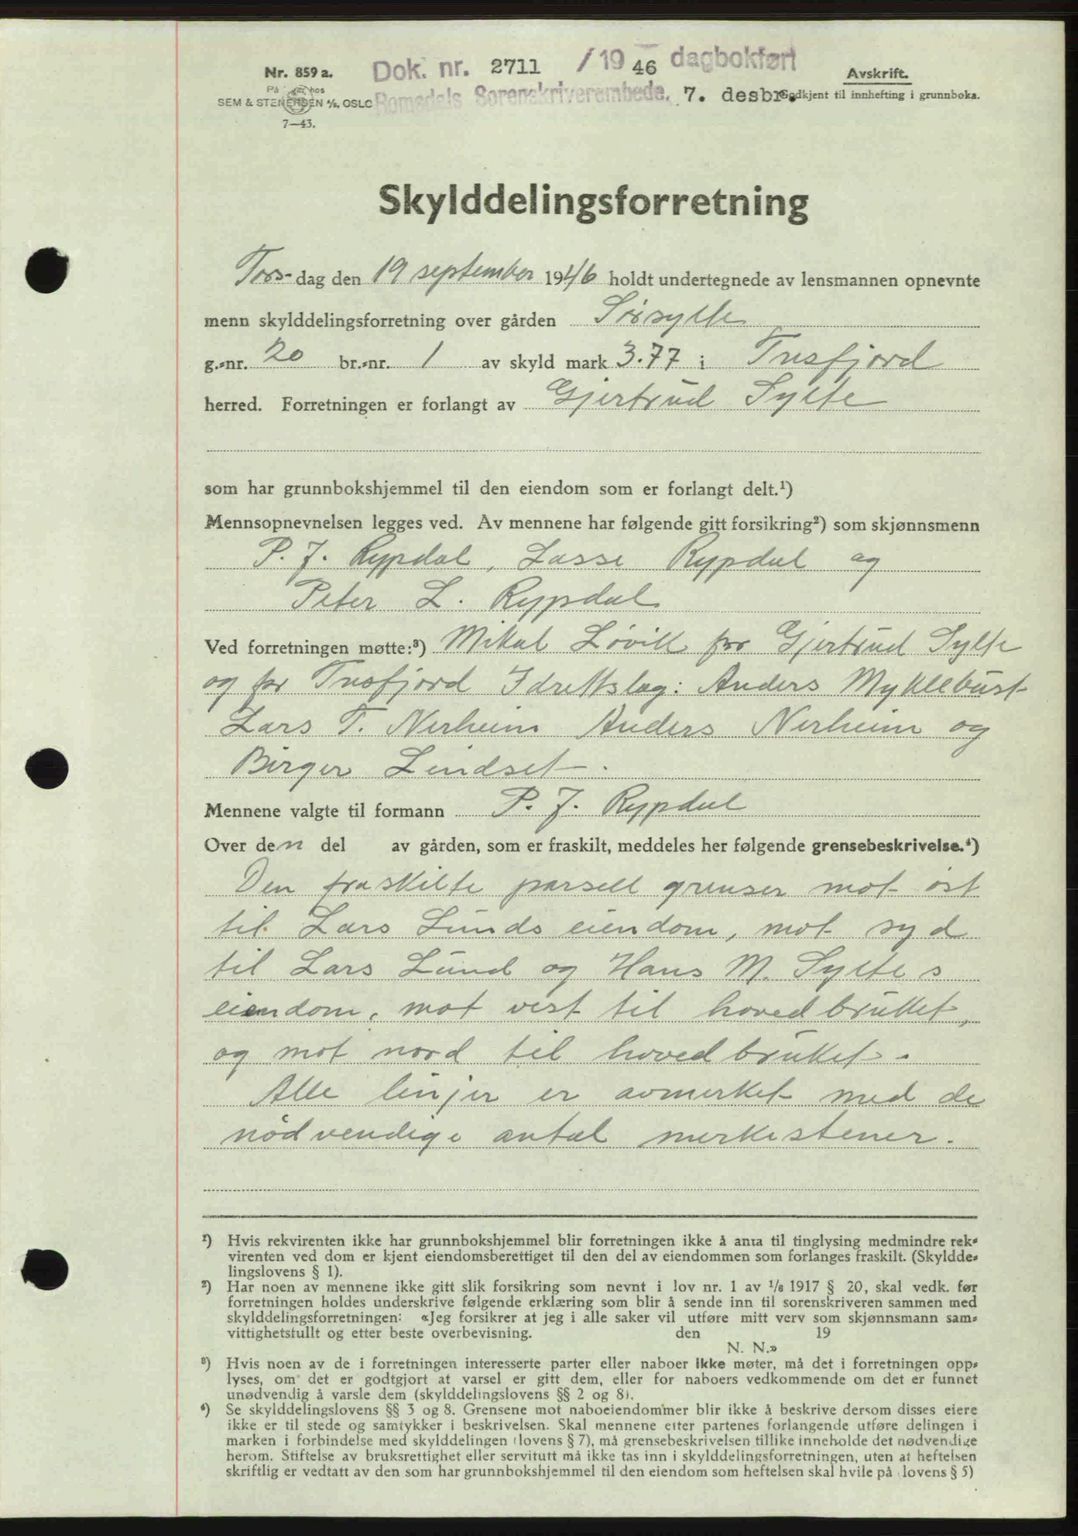 Nr. 859 a.
På hos
SEM & STENERSEN A/S, OSLO
7—43.
Dok. nr. 2711 / 19 46 dagbokført
Romsdals Sorenskriverembede. 7. desbr.
Avskrift.
Godkjent til innhefting i grunnboka.
Skylddelingsforretning
Tors-dag den 19 september 1946 holdt undertegnede av lensmannen opnevnte
menn skylddelingsforretning over gården Sørsylte
g.-nr. 20 br.-nr. 1 av skyld mark 3.77 i Tresfjord
herred. Forretningen er forlangt av Gjertrud Sylte
som har grunnbokshjemmel til den eiendom som er forlangt delt.¹)
Mennsopnevnelsen legges ved. Av mennene har følgende gitt forsikring²) som skjønnsmenn
P. J. Rypdal, Lasse Rypdal og
Peter L. Rypdal
Ved forretningen møtte:³) Mikal Løvik for Gjertrud Sylte
og for Tresfjord Idrettslag: Anders Myklebust
Lars T. Nerheim Anders Nerheim og
Birger Lindset.
Mennene valgte til formann P. J. Rypdal
Over den del av gården, som er fraskilt, meddeles her følgende grensebeskrivelse.⁴)
Den fraskilte parsell grenser mot øst
til Lars Lunds eiendom, mot syd
til Lars Lund og Hans M. Syltes
eiendom, mot vest til hovedbruket,
og mot nord til hovedbruket.
Alle linjer er avmerket med de
nødvendige antal merkestener.
¹) Hvis rekvirenten ikke har grunnbokshjemmel blir forretningen ikke å anta til tinglysing medmindre rek-
virenten ved dom er kjent eiendomsberettiget til den del av eiendommen som forlanges fraskilt. (Skyldde-
lingslovens § 1).
²) Har noen av mennene ikke gitt slik forsikring som nevnt i lov nr. 1 av 1/8 1917 § 20, skal vedk. før
forretningen holdes underskrive følgende erklæring som blir å sende inn til sorenskriveren sammen med
skylddelingsforretningen: «Jeg forsikrer at jeg i alle saker vil utføre mitt verv som skjønnsmann sam-
vittighetsfullt og etter beste overbevisning. den 19
N. N.»
³) Hvis noen av de i forretningen interesserte parter eller naboer ikke møter, må det i forretningen opp-
lyses, om det er godtgjort at varsel er gitt dem, eller for naboers vedkommende om det er funnet
unødvendig å varsle dem (skylddelingslovens §§ 2 og 8).
⁴) Se skylddelingslovens §§ 3 og 8. Grensene mot naboeiendommer blir ikke å beskrive dersom disses eiere
ikke er til stede og samtykker i beskrivelsen. Skal mennene etter partenes forlangende utføre delingen i
marken i forbindelse med skylddelingen (lovens § 7), må grensebeskrivelsen tillike inneholde det nødvendige
herom. Stiftelse av bruksrettighet eller servitutt må ikke tas inn i skylddelingsforretningen, uten at heftelsen
skriftlig er vedtatt av den som har grunnbokshjemmel til den eiendom som heftelsen skal hvile på (lovens § 5)